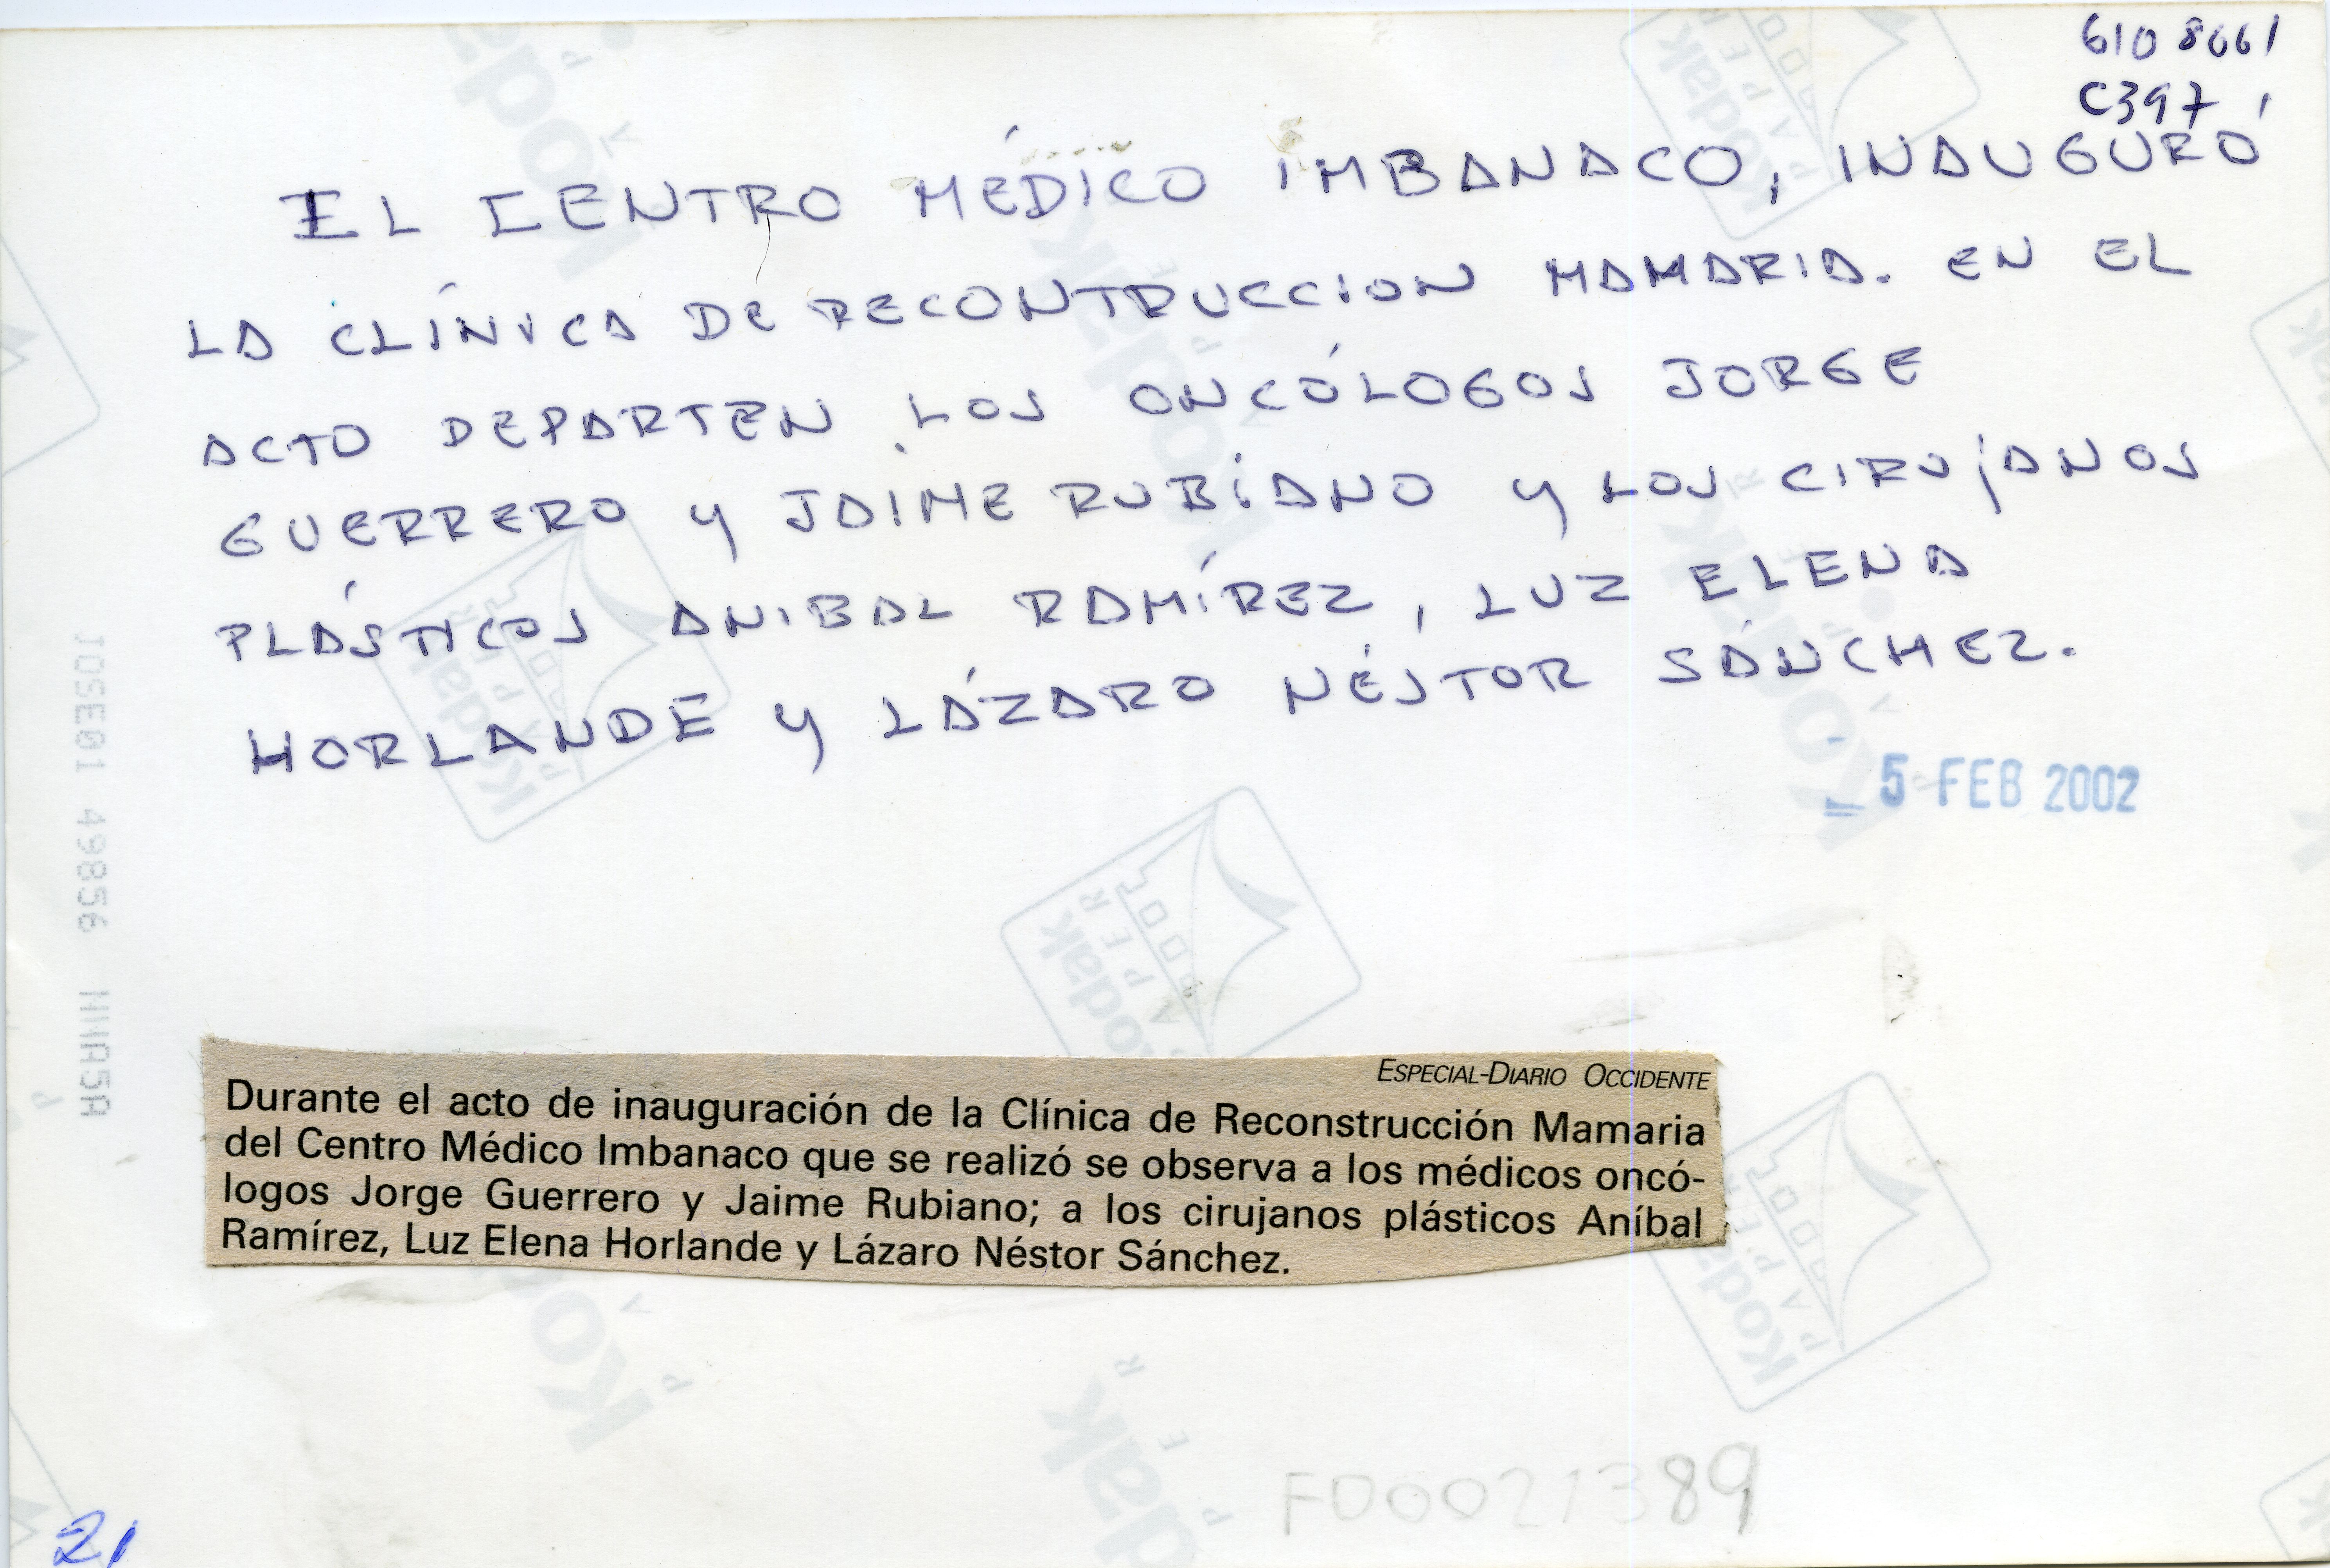 610 8661
C397
EL CENTRO MÉDICO IMBANACO, INAUGURÓ
LA CLÍNICA DE RECONTRUCCION MAMARIA. EN EL
ACTO DEPARTEN LOS ONCÓLOGOS JORGE
GUERRERO y JAIME RUBIANO y LOS CIRUJANOS
PLÁSTICOS ANIBAL RAMÍREZ, LUZ ELENA
HORLANDE y LÁZARO NÉSTOR SÁNCHEZ.
- 5 FEB 2002
ESPECIAL-DIARIO OCCIDENTE
Durante el acto de inauguración de la Clínica de Reconstrucción Mamaria
del Centro Médico Imbanaco que se realizó se observa a los médicos oncó-
logos Jorge Guerrero y Jaime Rubiano; a los cirujanos plásticos Aníbal
Ramírez, Luz Elena Horlande y Lázaro Néstor Sánchez.
F00021389
21
Kodak